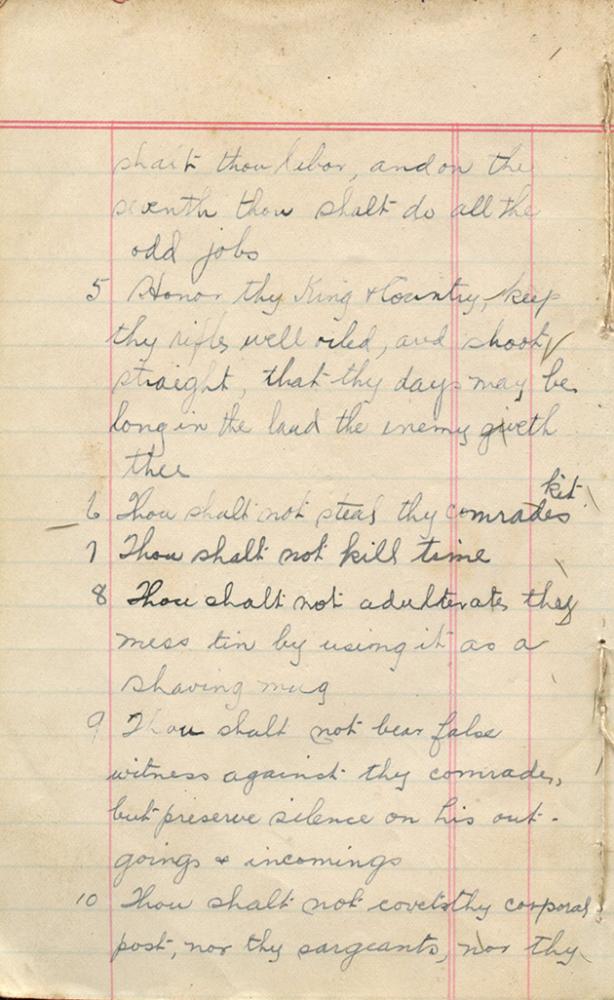 shalt thou labor, and on the
seventh thou shalt do all the
odd jobs
5 Honor thy King & Country, keep
thy rifles well oiled, and shoot
straight, that thy days may be
long in the land the enemy giveth
thee
kit
6 Thou shalt not steal thy comrades
7 Thou shalt not kill time
8 Thou shalt not adulterate thy
mess tin by using it as a
shaving mug
9 Thou shalt not bear false
witness against thy comrades,
but preserve silence on his out-
goings & incomings
10 Thou shalt not covet thy corporal
post, nor thy sargeants, nor thy